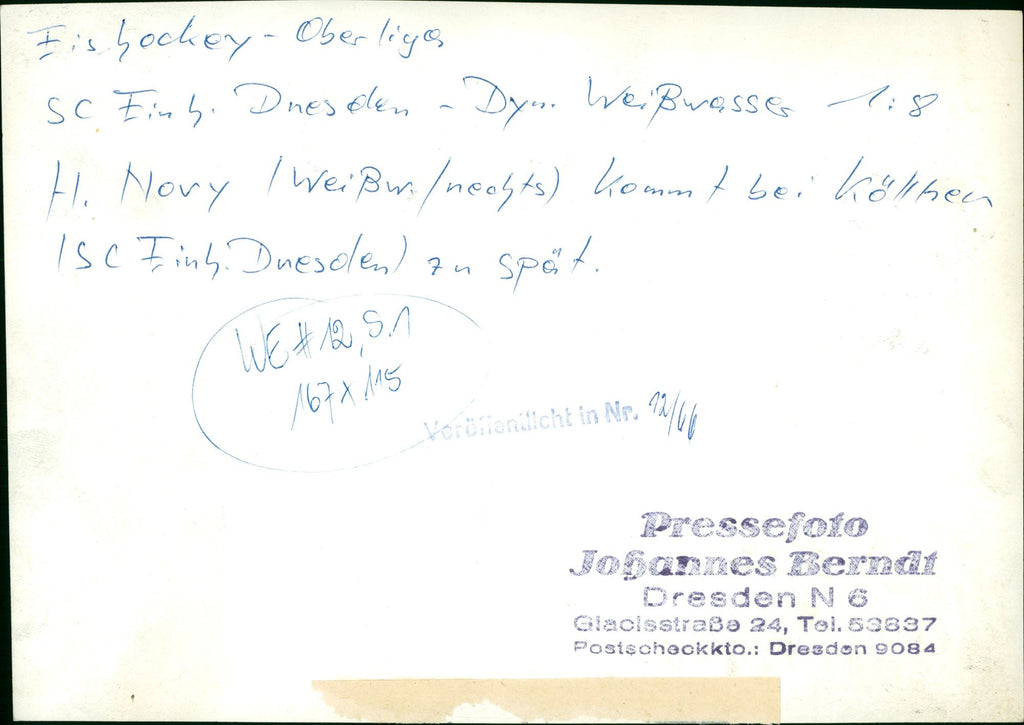 Eishockey - Oberliga
SC Einh. Dresden - Dyn. Weißwasser 1:8
H. Novy (Weißw./rechts) kommt bei Köllhen
(SC Einh. Dresden) zu spät.
WE # 12, S. 1
167 x 115
Veröffentlicht in Nr. 12/66
Pressefoto
Johannes Berndt
Dresden N 6
Glacisstraße 24, Tel. 53837
Postscheckkto.: Dresden 9084